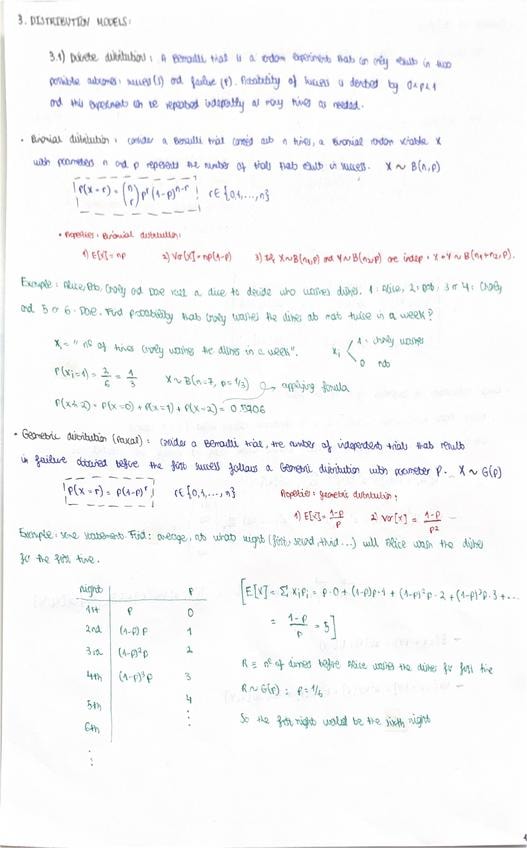 3. DISTRIBUTION MODELS:
3.1) Discrete distribution: A Bernoulli trial is a random experiment that can only result in two
possible outcomes: success (s) and failure (F). Probability of success is denoted by 0<p<1
and this experiment can be repeated indepently as many times as needed.
• Binomial distribution: consider a Bernoulli trial carried out n times, a Binomial random variable X
with parameters n and p represents the number of trials that result in success. X ~ B(n,p)
P(X=r) = (n r) p^r (1-p)^n-r r∈{0,1,...,n}
• Properties: Binomial distribution:
1) E[X]=np 2) Var[X]=np(1-p) 3) If X~B(n1,p) and Y~B(n2,p) are indep. X+Y ~ B(n1+n2,p).
Example: Alice, Bob, Charly and Doe roll a dice to decide who washes dishes. 1: Alice, 2: Bob, 3 or 4: Charly
and 5 or 6: Doe. Find probability that Charly washes the dishes at most twice in a week?
Xi = " nº of times Charly washes the dishes in a week". xi < 1 - Charly washes
0 not
P(xi=1) = 2/6 = 1/3 X ~ B(n=7, p=1/3) applying formula
P(X≤2) = P(X=0) + P(X=1) + P(X=2) = 0.5706
• Geometric distribution (Pascal): consider a Bernoulli trial, the number of independent trials that results
in failure obtained before the first success follows a Geometric distribution with parameter P. X ~ G(p)
P(X=r) = p(1-p)^r r∈{0,1,...,n} Properties: geometric distribution:
1) E[X] = 1-p/p 2) Var[X] = 1-p/p²
Example: same statement. Find: average, at what night (first, second, third...) will Alice wash the dishes
for the first time.
night P
1st p 0
2nd (1-p)p 1
3rd (1-p)²p 2
4th (1-p)³p 3
5th 4
6th ⋮
⋮
[E[X] = Σ xipi = p·0 + (1-p)p·1 + (1-p)²p·2 + (1-p)³p·3 + ...
= 1-p/p = 5]
R ≡ nº of times before Alice washes the dishes for first time
R ~ G(p) : p = 1/6
So the first night would be the sixth night